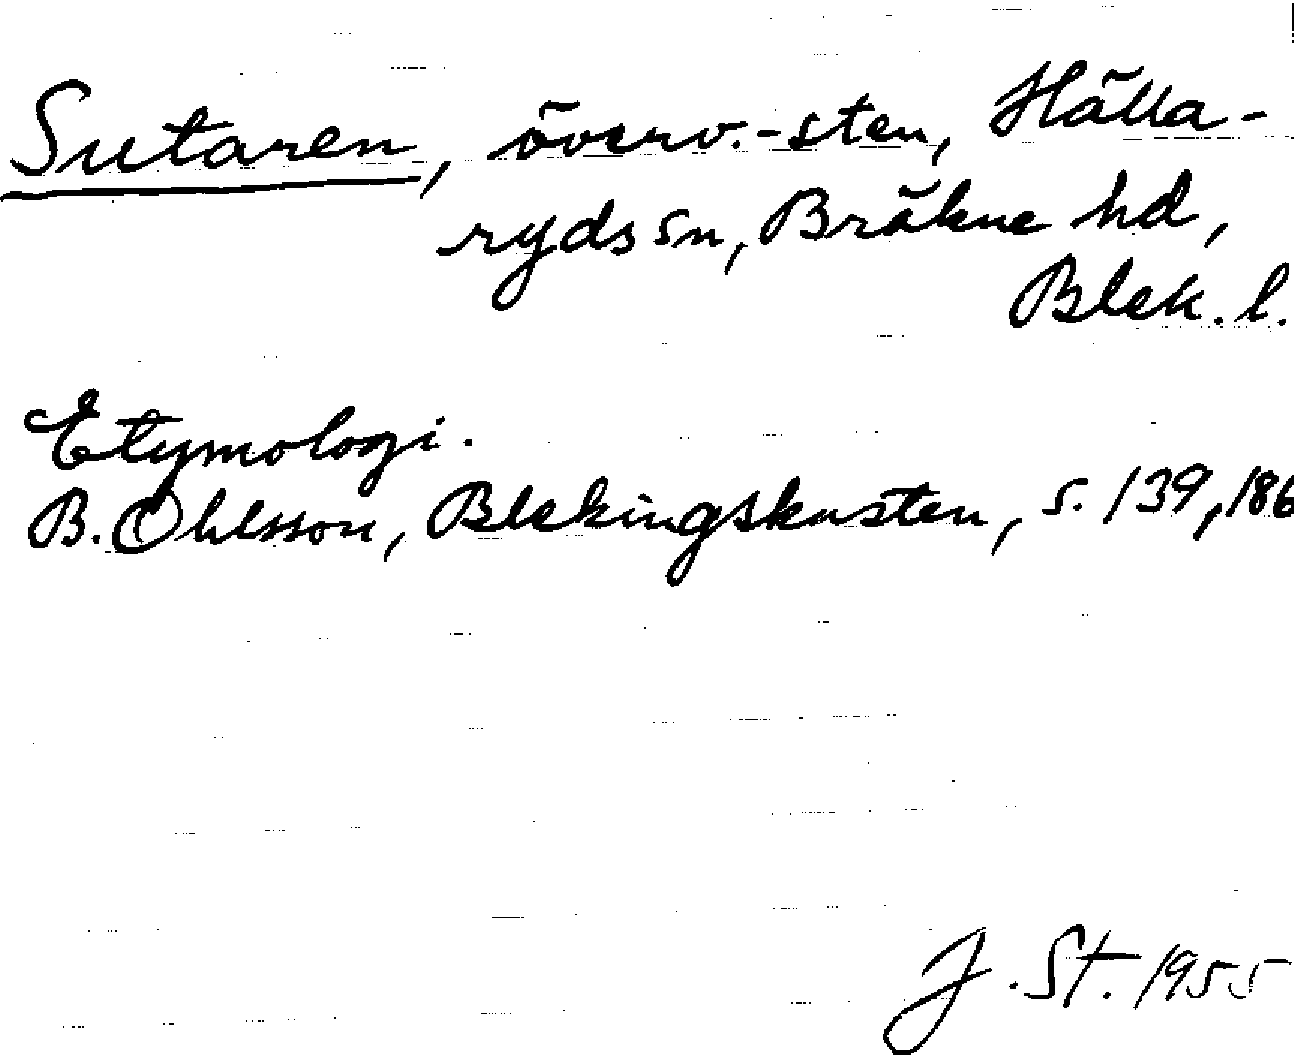 Sutaren, överv.-sten, Hälla-
ryds sn, Bräkne hd,
Blek. l.
Etymologi.
B. Ohlsson, Blekingskusten, s. 139, 186
J. St. 1955